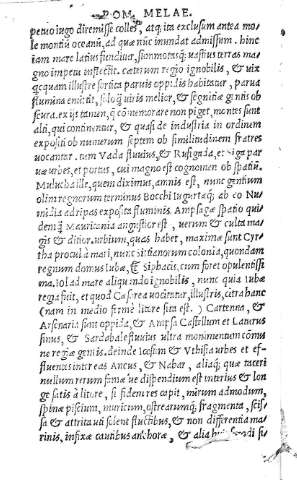 POM. MELAE.
petuo iugo diremisse colles, atq; ita exclusum antea mo-
le montiũ oceanũ, ad quæ nũc inundat admissum. hinc
iam mare latius funditur, summotasq; uastius terras ma-
gno impetu inflectit. cæterum regio ignobilis, & uix
qcquam illustre sortita paruis oppidis habitatur, parua
flumina emittit, solo q̃ uiris melior, & segnitia gentis ob
scura. ex ijs tamen, q̃ cõmemorare non piget, montes sunt
alti, qui continentur, & quasi de industria in ordinem
expositi ob numerum septem ob similitudinem fratres
uocantur. tum Vada fluuius, & Rusigada, et Siga par
uæ urbes, et portus, cui magno est cognomen ob spatiũ.
Mulucha ille, quem diximus, amnis est, nunc gentium
olim regnorum terminus Bocchi Iugurtæq; ab eo Nu-
midia ad ripas exposita fluminis Ampsagæ spatio qui-
dem q̃ Mauritania angustior est, uerum & culta ma-
gis & ditior. urbium, quas habet, maximæ sunt Cyr-
tha procul a mari, nunc sittianorum colonia, quondam
regnum domus Iubæ, & Siphacis, cum foret opulentissi
ma. Iol ad mare aliquando ignobilis, nunc quia Iubæ
regia fuit, et quod Cæsarea uocitatur, illustris, citra hanc
(nam in medio fermè litore sita est.) Cartenna, &
Arsenaria sunt oppida, & Ampsa Castellum et Laturus
sinus, & Sardabale fluuius ultra monumentum cõmu
ne regiæ gentis. deinde Icosium & Vthisia urbes et ef-
fluentes inter eas Ancus, & Nabar, aliaq; quæ taceri
nullum rerum famæ ue dispendium est interius & lon
ge satis à litore, si fidem res capit, mirum ad modum,
spinæ piscium, muricum, ostrearumq; fragmenta, saxa
& attrita uti solent fluctibus, & non differentia ma-
rinis, infixæ cautibus anchoræ, & alia si-